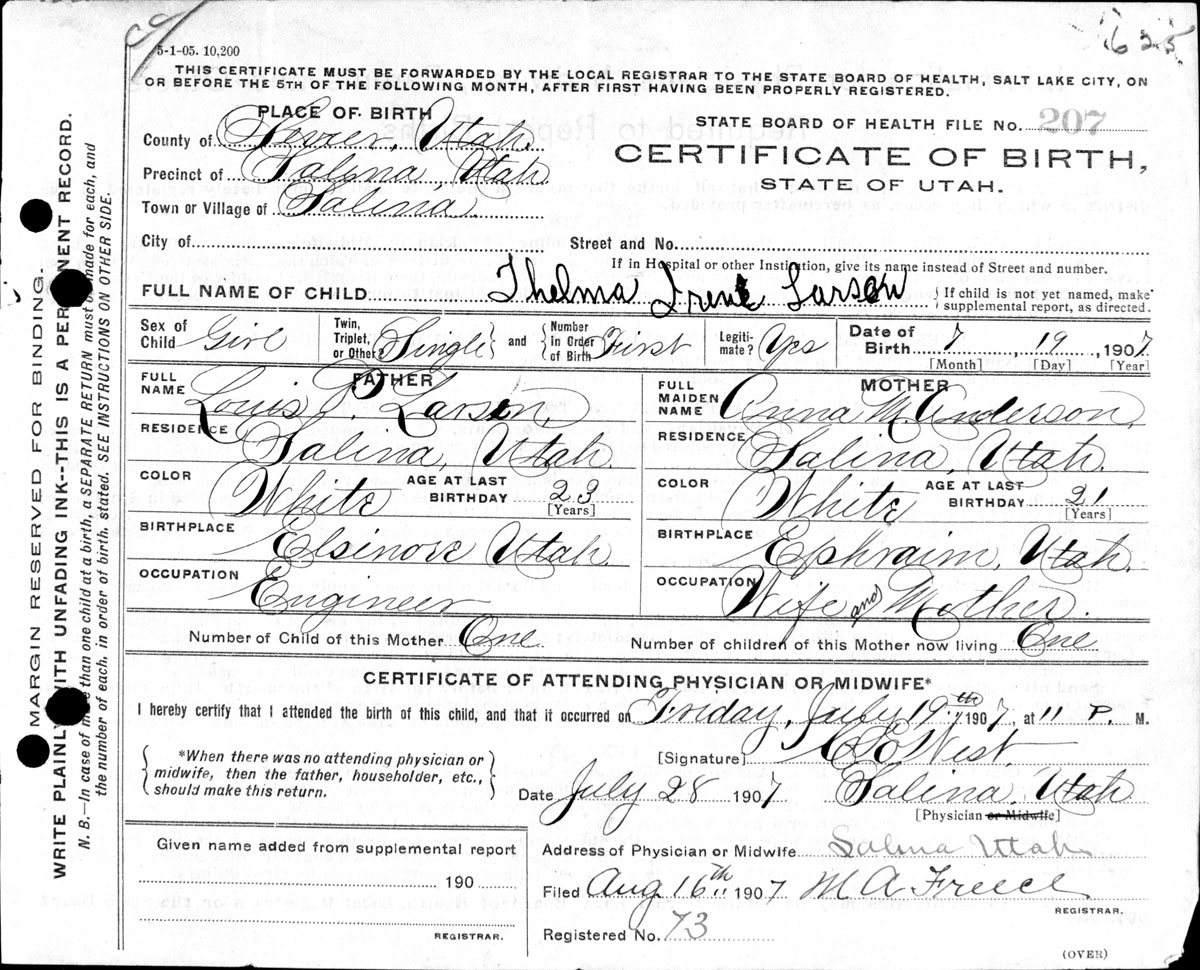 5-1-05. 10,200
625
THIS CERTIFICATE MUST BE FORWARDED BY THE LOCAL REGISTRAR TO THE STATE BOARD OF HEALTH, SALT LAKE CITY, ON
OR BEFORE THE 5TH OF THE FOLLOWING MONTH, AFTER FIRST HAVING BEEN PROPERLY REGISTERED.
PLACE OF BIRTH
County of Sevier, Utah.
Precinct of Salina, Utah
Town or Village of Salina
STATE BOARD OF HEALTH FILE No. 207
CERTIFICATE OF BIRTH,
STATE OF UTAH.
City of Street and No.
If in Hospital or other Institution, give its name instead of Street and number.
FULL NAME OF CHILD Thelma Irene Larsen } If child is not yet named, make
supplemental report, as directed.
Sex of Child Girl Twin, Triplet, or Other? Single and Number in Order of Birth First Legiti- mate? Yes Date of Birth 7, 19, 1907
[Month] [Day] [Year]
FATHER
FULL NAME Louis P. Larsen,
RESIDENCE Salina, Utah.
COLOR White AGE AT LAST BIRTHDAY 23 [Years]
BIRTHPLACE Elsinore Utah.
OCCUPATION Engineer
MOTHER
FULL MAIDEN NAME Anna M. Anderson,
RESIDENCE Salina, Utah.
COLOR White AGE AT LAST BIRTHDAY 21 [Years]
BIRTHPLACE Ephraim, Utah.
OCCUPATION Wife and Mother.
Number of Child of this Mother One. Number of children of this Mother now living One
CERTIFICATE OF ATTENDING PHYSICIAN OR MIDWIFE*
I hereby certify that I attended the birth of this child, and that it occurred on Friday, July 19th 1907, at 11 P. M.
*When there was no attending physician or
midwife, then the father, householder, etc.,
should make this return.
[Signature] West.
Date July 28 1907 Salina, Utah
[Physician or Midwife]
Given name added from supplemental report
190
REGISTRAR.
Address of Physician or Midwife Salina Utah
Filed Aug 16th 1907 M A Freece
REGISTRAR.
Registered No. 73
(OVER)
MARGIN RESERVED FOR BINDING.
WRITE PLAINLY WITH UNFADING INK--THIS IS A PERMANENT RECORD.
N. B.—In case of more than one child at a birth, a SEPARATE RETURN must be made for each, and
the number of each, in order of birth, stated. SEE INSTRUCTIONS ON OTHER SIDE.